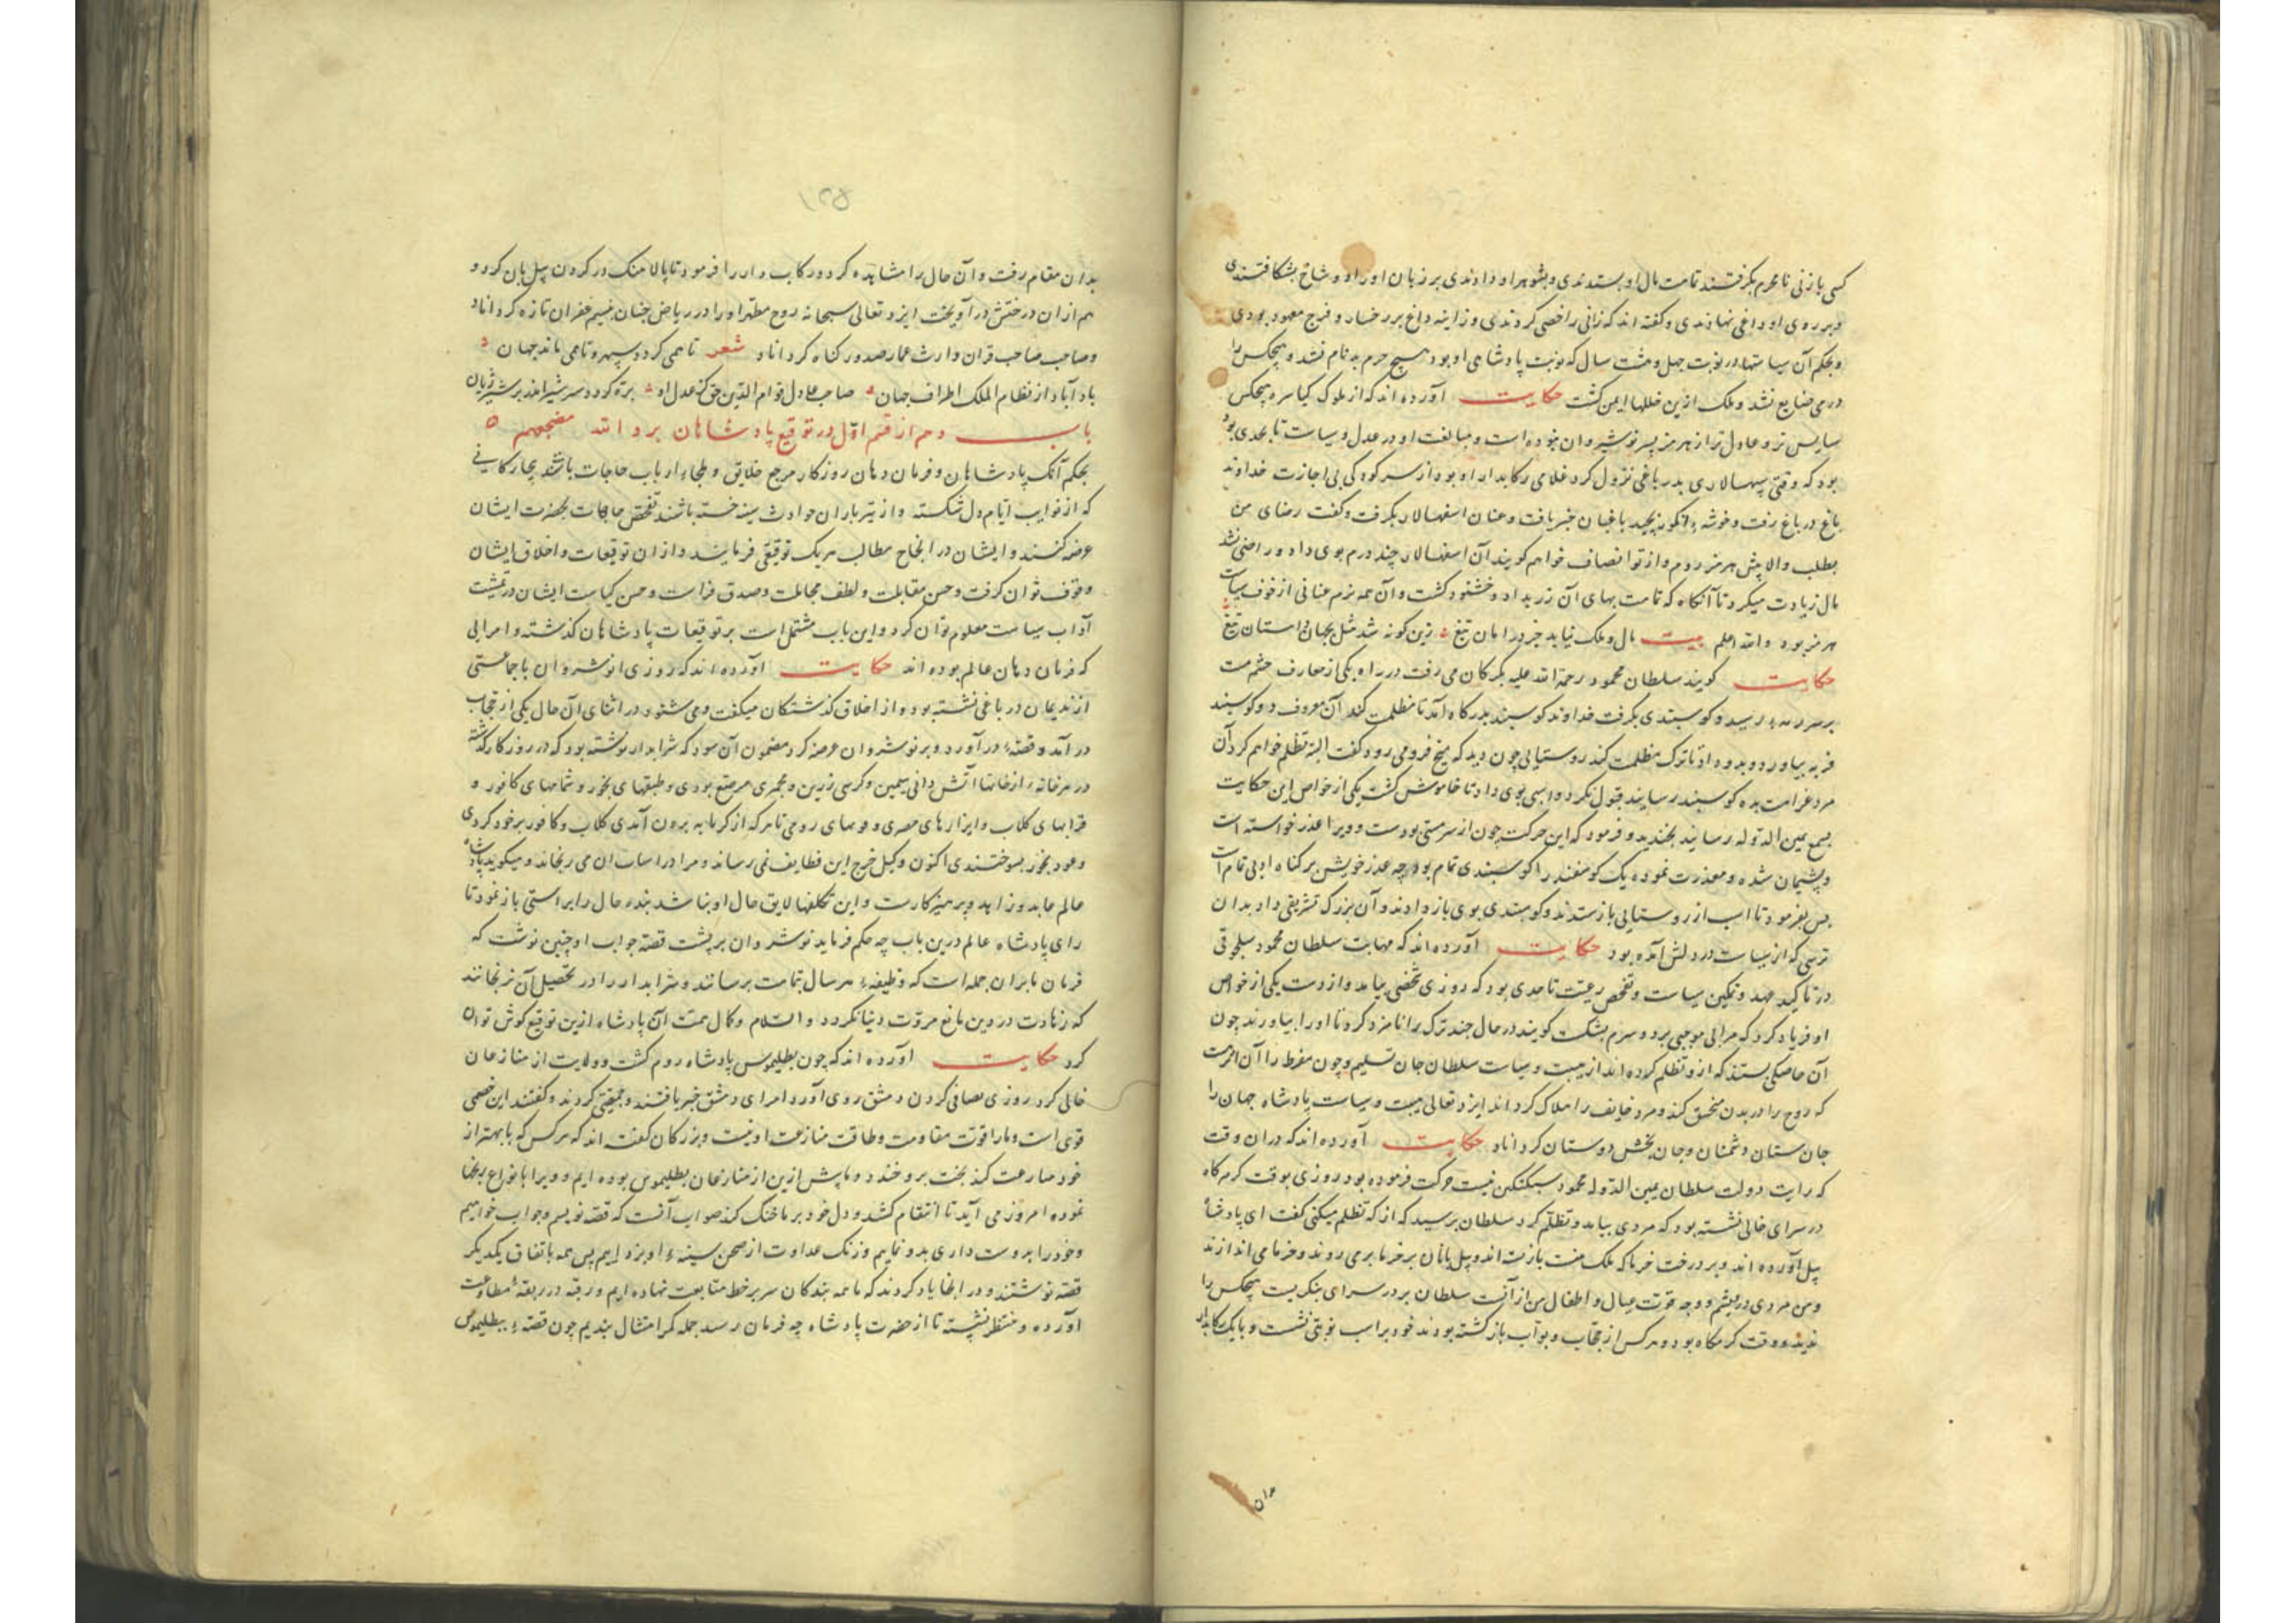 کسی با زنی نامحرم بگرفتند تمامت مال او بستدندی و بشوهر او دادندی بر زیان او را دو شاخ بشکافتندی
و بر روی او داغی نهادندی و گفته اند که زانی را خصی کردندی و زانیه داغ بر رخسار و فرج معهود بودی
و بحکم آن سیاستها در نوبت چهل و هشت سال که نوبت پادشاهی او بود هیچ حرم بدنام نشد و هیچکس را
درمی ضایع نشد و ملک ازین خللها ایمن گشت حکایت آورده اند که از ملوک اکاسره هیچکس
سایس تر و عادل تر از هرمز پسر نوشیروان نبوده است و مبالغت او در عدل و سیاست تا بحدی بود
بود که وقتی سپهسالاری بدر باغی نزول کرد غلامی رکابدار او بود از سر کودکی بی اجازت خداوند
باغ در باغ رفت و خوشه انگور بچید باغبان خبر یافت و عنان اسفهسالار بگرفت و گفت رضای من
بطلب والا پیش هرمز روم و از تو انصاف خواهم گویند آن اسفهسالار چند درم بوی داد و راضی نشد
مال زیادت میکرد تا آنگاه که تمامت بهای آن زر بداد و خشنود گشت و آن همه نرم عنانی از خوف سیاست
هرمز بود والله اعلم بیت مال و ملک نیاید جز در امان تیغ زین گونه شد مثل بجهان داستان تیغ
حکایت گویند سلطان محمود رحمة الله علیه بگرگان می رفت در راه یکی از معارف حشم مست
بر سر رمه رسید و گوسپندی بگرفت خداوند گوسپند بدرگاه آمد تا مظلمت کند آن معروف دو گوسپند
فربه بیاورد و بدو داد تا ترک مظلمت کند روستایی چون دید که میخ فرو می رود گفت البته تظلم خواهم کرد آن
مرد غرامت بده گوسپند رسانید قبول نکرد و اسبی بوی داد تا خاموش گشت یکی از خواص این حکایت
بسمع یمین الدوله رسانید بخندید و فرمود که این حرکت چون از سر مستی بودست و ویرا عذر خواسته است
و پشیمان شده و معذرت نموده یک گوسفند را گوسپندی تمام بود چه عذر خویش بر گناه ادبی تمام است
پس بفرمود تا اسب از روستایی بازستدند و گوسپندی بوی باز دادند و آن بزرگ تشریفی داد بدان
ترسی که از سیاست در دلش آمده بود حکایت آورده اند که مهابت سلطان محمود سلجوقی
در تاکید عهد و تمکین سیاست و تفحص رعیت تا حدی بود که روزی شخصی بیامد و از دست یکی از خواص
او فریاد کرد که مرا بی موجبی بزد و سرم بشکست گویند در حال چند ترک را نامزد کرد تا او را بیاورند چون
آن خاصگی بستند که از و تظلم کرده اند از هیبت و سیاست سلطان جان تسلیم و چون مفرط را آن اثرست
که روح را در بدن مختنق کند و مرد خایف را هلاک گرداند ایزد تعالی هیبت و سیاست پادشاه جهان را
جان ستان دشمنان و جان بخش دوستان گرداناد حکایت آورده اند که دران وقت
که رایت دولت سلطان یمین الدوله محمود سبکتکین نیت حرکت فرموده بود روزی بوقت گرمگاه
در سرای خالی نشسته بود که مردی بیامد و تظلم کرد سلطان پرسید که از که تظلم میکنی گفت ای پادشاه
پیل آورده اند و بر درخت خرما که ملک منست بازبسته اند و پیل بانان بر خرما بر می روند و خرما می اندازند
و من مردی درویشم و وجه قوت عیال و اطفال من از آنست سلطان بر در سرای بنگریست هیچکس را
ندید و وقت گرمگاه بود و هر کس از حجاب و بواب بازگشته بودند خود بر اسب نوبتی نشست و با یک رکابدار
۱۳۵
بدان مقام رفت و آن حال را مشاهده کرد و رکاب دار را فرمود تا پالاهنگ در گردن پیل بان کرد و
هم ازان درختش در آویخت ایزد تعالی سبحانه روح مطهر او را در ریاض جنان بنسیم غفران تازه گرداناد
و صاحب صاحب قران وارث عمار صدور گناه گرداناد شعر تا همی گردد سپهر و تا همی ماند جهان
باد آباد از نظام الملک اطراف جهان صاحب عادل قوام الدین حق کز عدل او بره گردد سر شیر اندر بر شیر ژیان
باب دهم از قسم اول در توقیع پادشاهان برد الله مضجعهم
بحکم آنک پادشاهان و فرمان دهان روزگار مرجع خلایق و ملجاء ارباب حاجات باشند بیچارگانی
که از نوایب ایام دل شکسته و از تیر باران حوادث سینه خسته باشند تفحص حاجات بحضرت ایشان
عرضه کنند و ایشان در انجاح مطالب هر یک توقیعی فرمایند و ازان توقیعات و اخلاق ایشان
وقوف توان گرفت و حسن مقابلت و لطف مجاملت و صدق فراست و حسن کیاست ایشان در تمشیت
آداب سیاست معلوم توان کرد و این باب مشتمل است بر توقیعات پادشاهان گذشته و امرایی
که فرمان دهان عالم بوده اند حکایت آورده اند که روزی انوشروان با جماعتی
از ندیمان در باغی نشسته بود و از اخلاق گذشتگان میگفت و می شنود در اثنای آن حال یکی از حجاب
در آمد و قصه در آورد و بر نوشروان عرضه کرد مضمون آن بود که شرابدار نوشته بود که در روزگار گذشته
در هر خانه از خانها آتش دانی سیمین و کرسی زرین و مجمری مرصع بودی و طبقهای بخور و شمامهای کافور و
قرابهای گلاب و ایزارهای مصری و فوطهای رومی تا هر که از گرمابه برون آمدی گلاب و کافور بر خود کردی
و عود بخور بسوختندی اکنون وکیل خرج این وظایف نمی رساند و مرا در اسباب آن می رنجاند و میگوید پادشاه
عالم عابد و زاهد و پرهیزگارست و این تکلفها لایق حال او نباشد بنده حال را براستی باز نمود تا
رای پادشاه عالم درین باب چه حکم فرماید نوشروان بر پشت قصه جواب او چنین نوشت که
فرمان ما بران جمله است که وظیفه هر سال بتمامت برسانند و شرابدار را در تحصیل آن نرنجانند
که زهادت در دین مانع مروت دنیا نگردد والسلام و کمال همت آن پادشاه ازین توقیع گوش توان
کرد حکایت آورده اند که چون بطلیموس پادشاه روم گشت و ولایت از منازعان
خالی کرد روزی بصافی کردن دمشق روی آورد امرای دمشق خبر یافتند و جمعیتی کردند و گفتند این خصمی
قوی است و ما را قوت مقاومت و طاقت منازعت او نیست و بزرگان گفته اند که هر کس که با بهتر از
خود مصارعت کند بخت برو خندد و ما پیش ازین از منازعان بطلیموس بوده ایم و ویرا بانواع رنجها
نموده امروز می آید تا انتقام کشد و دل خود بر ما خنک کند صواب آنست که قصه نویسیم و جواب خواهیم
و خود را بدوست داری بدو نماییم و زنگ عداوت از صحن سینه او بزداییم پس همه باتفاق یکدیگر
قصه نوشتند و در انجا یاد کردند که ما همه بندگان سر بر خط متابعت نهاده ایم و رقبه در ربقه مطاوعت
آورده و منتظر نشسته تا از حضرت پادشاه چه فرمان رسد جمله کمر امتثال بندیم چون قصه ببطلیموس